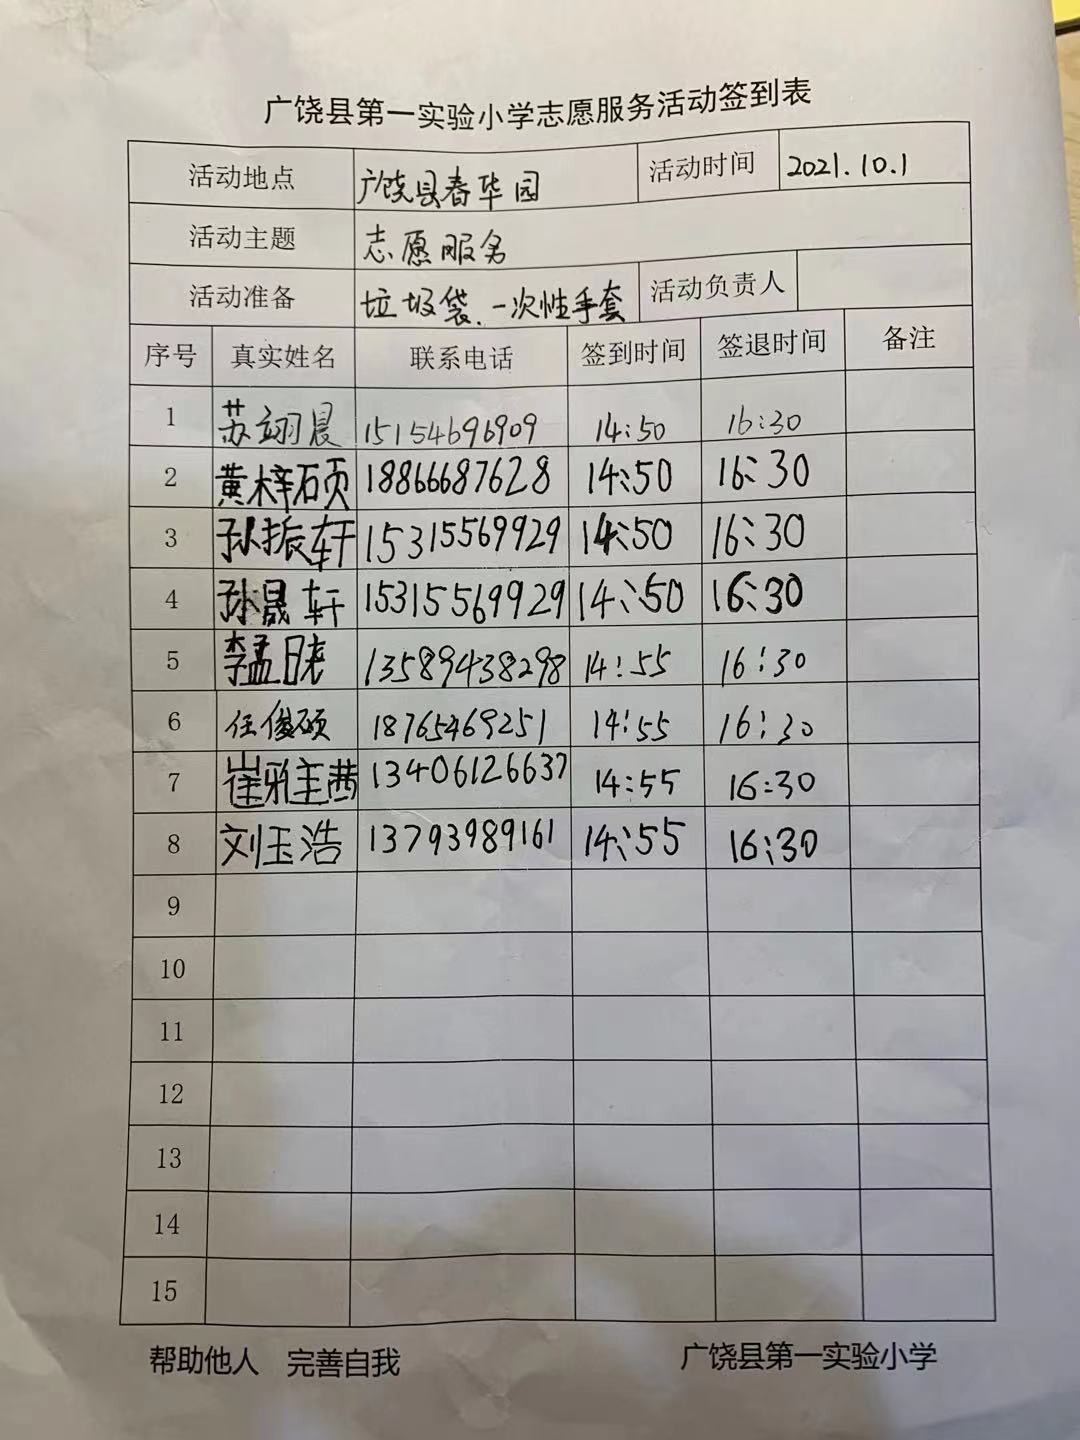 广饶县第一实验小学志愿服务活动签到表
活动地点 广饶县春华园 活动时间 2021.10.1
活动主题 志愿服务
活动准备 垃圾袋、一次性手套 活动负责人
序号 真实姓名 联系电话 签到时间 签退时间 备注
1 苏翊晨 15154696909 14:50 16:30
2 黄梓硕 18866687628 14:50 16:30
3 孙振轩 15315569929 14:50 16:30
4 孙晟轩 15315569929 14:50 16:30
5 李孟晓 13589438298 14:55 16:30
6 任俊硕 18765469251 14:55 16:30
7 崔雅茜 13406126637 14:55 16:30
8 刘玉浩 13793989161 14:55 16:30
9
10
11
12
13
14
15
帮助他人 完善自我 广饶县第一实验小学